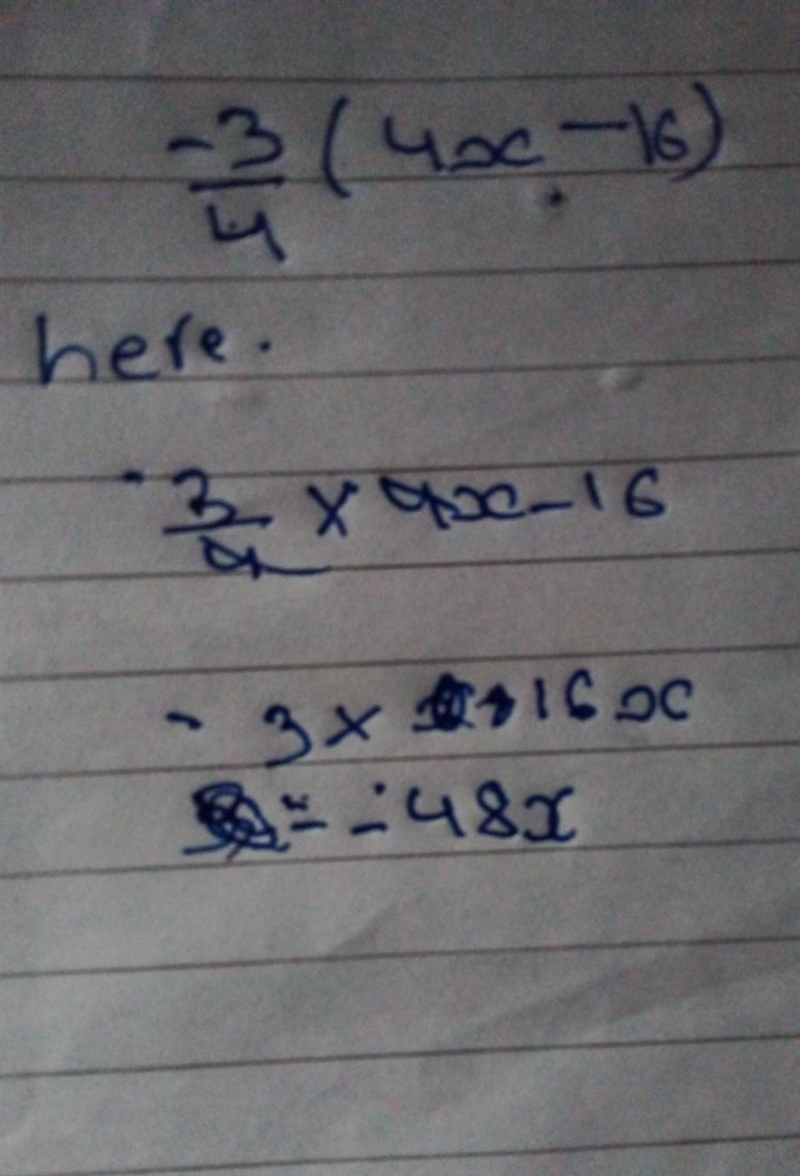 -3/4 (4x - 16)
here.
- 3/4 × 4x - 16
- 3 × 16x
= - 48x